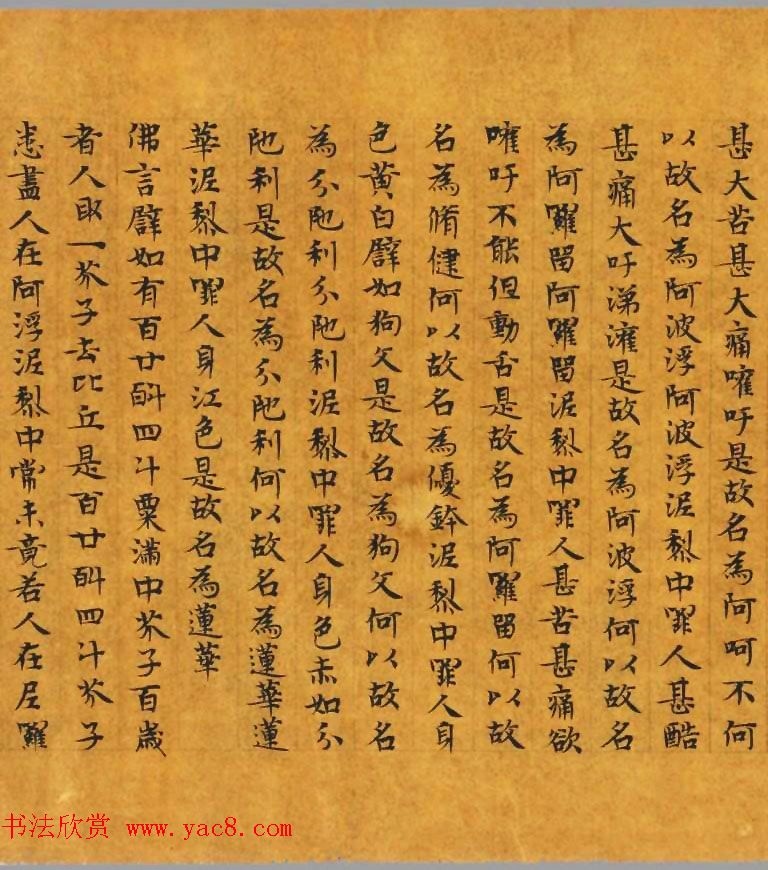 甚大苦甚大痛嚾吁是故名為阿呵不何
以故名為阿波浮阿波浮泥犁中罪人甚酷
甚痛大吁涕濩是故名為阿波浮何以故名
為阿羅留阿羅留泥犁中罪人甚苦甚痛欲
嚾吁不能但動舌是故名為阿羅留何以故
名為脩健何以故名為優鉢泥犁中罪人身
色黃白譬如狗父是故名為狗父何以故名
為分陀利分陀利泥犁中罪人身色赤如分
陀利是故名為分陀利何以故名為蓮華蓮
華泥犁中罪人身江色是故名為蓮華
佛言譬如有百廿斛四斗粟滿中芥子百歲
者人取一芥子去比丘是百廿斛四斗芥子
悉盡人在阿浮泥犁中常未竟若人在尼羅
书法欣赏 www.yac8.com